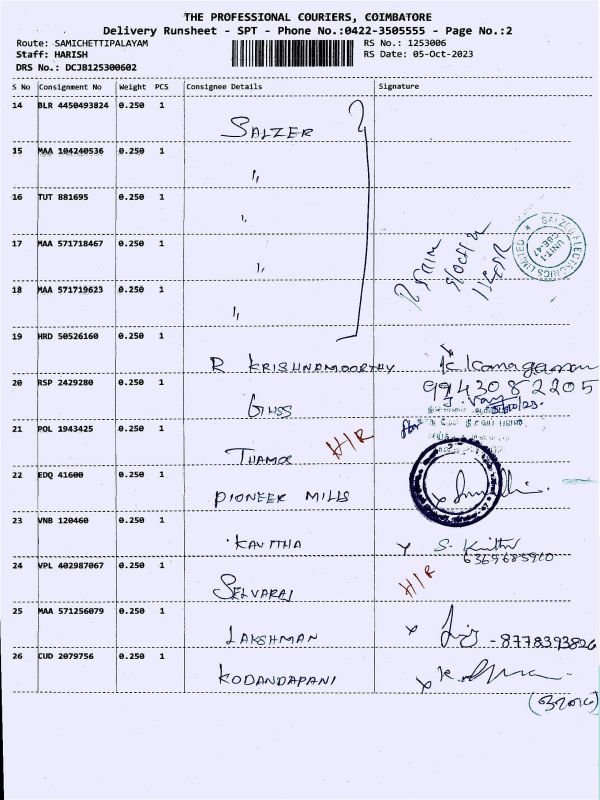 THE PROFESSIONAL COURIERS, COIMBATORE
Delivery Runsheet - SPT - Phone No.:0422-3505555 - Page No.:2
Route: SAMICHETTIPALAYAM
Staff: HARISH
DRS No.: DCJB125300602
RS No.: 1253006
RS Date: 05-Oct-2023
S No Consignment No Weight PCS Consignee Details Signature
14 BLR 4450493824 0.250 1
SALZER
15 MAA 104240536 0.250 1
"
16 TUT 881695 0.250 1
"
17 MAA 571718467 0.250 1
"
SALZER ELECTRONICS LIMITED
UNIT-I
CBE-47
18 MAA 571719623 0.250 1
"
19 HRD 50526160 0.250 1
R KRISHNAMOORTHY
20 RSP 2429280 0.250 1
9943082205
21 POL 1943425 0.250 1
H/R
22 EDQ 41600 0.250 1
PIONEER MILLS
23 VNB 120460 0.250 1
KAVITHA
6369685910
24 VPL 402987067 0.250 1
SELVARAJ H/R
25 MAA 571256079 0.250 1
LAKSHMAN - 8778393826
26 CUD 2079756 0.250 1
KODANDAPANI